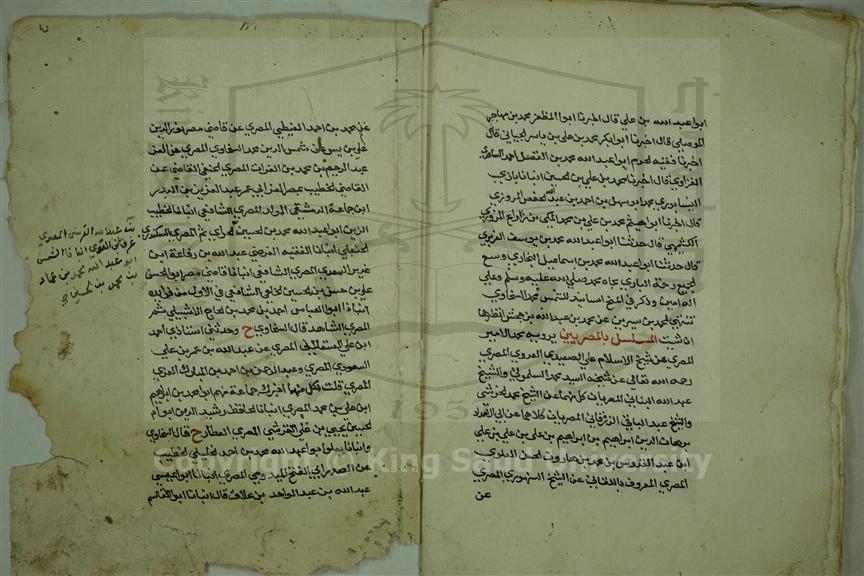 ابوا عبد الله بن علي قال اخبرنا ابوا المظفر محمد بن مهاجر
الموصلي قال اخبرنا ابوا بكر محمد بن علي بن ياسر الجياني قال
اخبرنا فقيه الحرم ابوا عبد الله محمد بن الفضل احمد الساعدي
الفراوي قال اخبرنا محمد بن علي بن الحسين انبانا
النيسابوري محمد بن احمد بن عبد الله الحفص المروزي
قال اخبرنا ابوا الهيثم محمد بن علي بن محمد المكي بن زراع المروزي
الكشميهني قال حدثنا ابوا عبد الله محمد بن يوسف الفربري
قال حدثنا ابوا عبد الله محمد بن اسماعيل البخاري وسع
الجميع رحمة الباري بجاه محمد صلي الله عليه وسلم وعلي
وذكر في المنح اسانيد للشمس محمد السخاوي
تنتهي لمحمد بن سيرين عن محمد بن عبد الله بن جحش انظرها
ان شيت المسلسل بالمصريين يرويه محمد الامير
المصري عن شيخ الاسلام علي الصعيدي العدوي المصري
رحمه الله تعالي عن شيخه السيد محمد السلموني والشيخ
عبد الله البناني المصريان كل منهما عن الشيخ محمد الخرشي
والشيخ عبد الباقي الزرقاني المصريان كلاهما عن ابي الامداد
برهان الدين ابراهيم بن ابراهيم بن علي بن علي بن علي
ابن عبد القدوس بن محمد بن هارون الحسن العلوي
المصري المعروف باللقاني عن الشيخ السنهوري المصري
عن
عن محمد بن احمد الغيطي المصري عن قاضي مصر نور الدين
علي بن يس عن شمس الدين محمد السخاوي المصري عن العز
عبد الرحيم بن محمد بن الفرات المصري الحنفي القاضي عن
القاضي الخطيب بمصر العز ابي عمر عبد العزيز بن البدر
ابن جماعة الدمشقي المولد المصري الشافعي انبانا الخطيب
الزين ابوا عبد الله محمد بن الحسين ثم المصري السكندري
الحنبلي انبانا الفقيه الفرضي عبد الله بن رفاعة ابن
غدير السعدي المصري الشافعي انبانا قاضي مصر ابوا الحسن
علي بن حسن بن الحسين الخلعي الشافعي في الاولي من فوايده
انبانا ابوا العباس احمد بن محمد بن الحاج الاشبيلي ثم
المصري الشاهد قال السخاوي ح وحدثني استاذي احمد
ابن علي العسقلاني المصري عن عبد الله بن عمر بن علي
السعودي المصري وعبد الرحمن بن احمد بن المبارك الغزي
المصري قلت لكل منهما اخبرك جماعة منهم ابوا احمد بن ابراهيم
ابن علي بن محمد المصري انبانا الحافظ رشيد الدين ابوا
الحسين يحيي بن علي القرشي المصري العطار ح قال السخاوي
وانبانا ابوا عبد الله محمد بن احمد الخليلي الخطيب
عن الصدر ابي الفتح الميدومي المصري انبانا ابوا عيسي
عبد الله بن عبد الواحد بن علاق قال انبانا ابوا القاسم
عبد الله القرشي المصري
انبانا الشمس
ابو عبد الله محمد بن عماد
بن محمد بن الحسين
Copyright © King Saud University
195